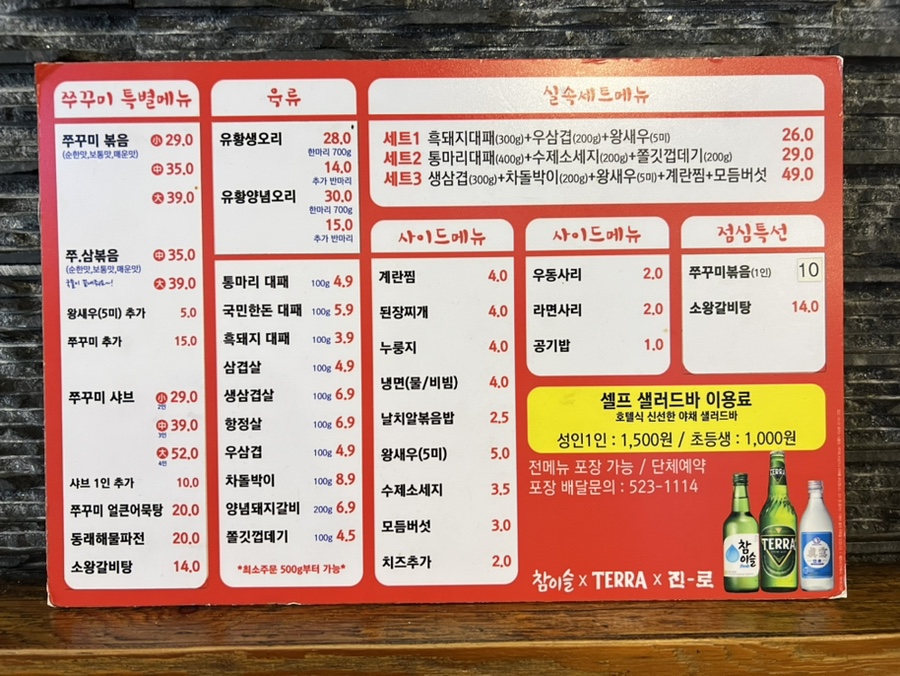 쭈꾸미 특별메뉴
쭈꾸미 볶음 小 29.0
(순한맛,보통맛,매운맛)
中 35.0
大 39.0
쭈.삼볶음 中 35.0
(순한맛,보통맛,매운맛)
大 39.0
왕새우(5미) 추가 5.0
쭈꾸미 추가 15.0
쭈꾸미 샤브 小 29.0
2인
中 39.0
3인
大 52.0
4인
샤브 1인 추가 10.0
쭈꾸미 얼큰어묵탕 20.0
동래해물파전 20.0
소왕갈비탕 14.0
육류
유황생오리 28.0
한마리 700g
14.0
추가 반마리
유황양념오리 30.0
한마리 700g
15.0
추가 반마리
통마리 대패 100g 4.9
국민한돈 대패 100g 5.9
흑돼지 대패 100g 3.9
삼겹살 100g 4.9
생삼겹살 100g 6.9
항정살 100g 6.9
우삼겹 100g 4.9
차돌박이 100g 8.9
양념돼지갈비 200g 6.9
쫄깃껍데기 100g 4.5
*최소주문 500g부터 가능*
실속세트메뉴
세트1 흑돼지대패(300g)+우삼겹(200g)+왕새우(5미) 26.0
세트2 통마리대패(400g)+수제소세지(200g)+쫄깃껍데기(200g) 29.0
세트3 생삼겹(300g)+차돌박이(200g)+왕새우(5미)+계란찜+모듬버섯 49.0
사이드메뉴
계란찜 4.0
된장찌개 4.0
누룽지 4.0
냉면(물/비빔) 4.0
날치알볶음밥 2.5
왕새우(5미) 5.0
수제소세지 3.5
모듬버섯 3.0
치즈추가 2.0
사이드메뉴
우동사리 2.0
라면사리 2.0
공기밥 1.0
점심특선
쭈꾸미볶음(1인) 10
소왕갈비탕 14.0
셀프 샐러드바 이용료
호텔식 신선한 야채 샐러드바
성인1인 : 1,500원 / 초등생 : 1,000원
전메뉴 포장 가능 / 단체예약
포장 배달문의 : 523-1114
참이슬 x TERRA x 진-로
참이슬
TERRA
TERRA